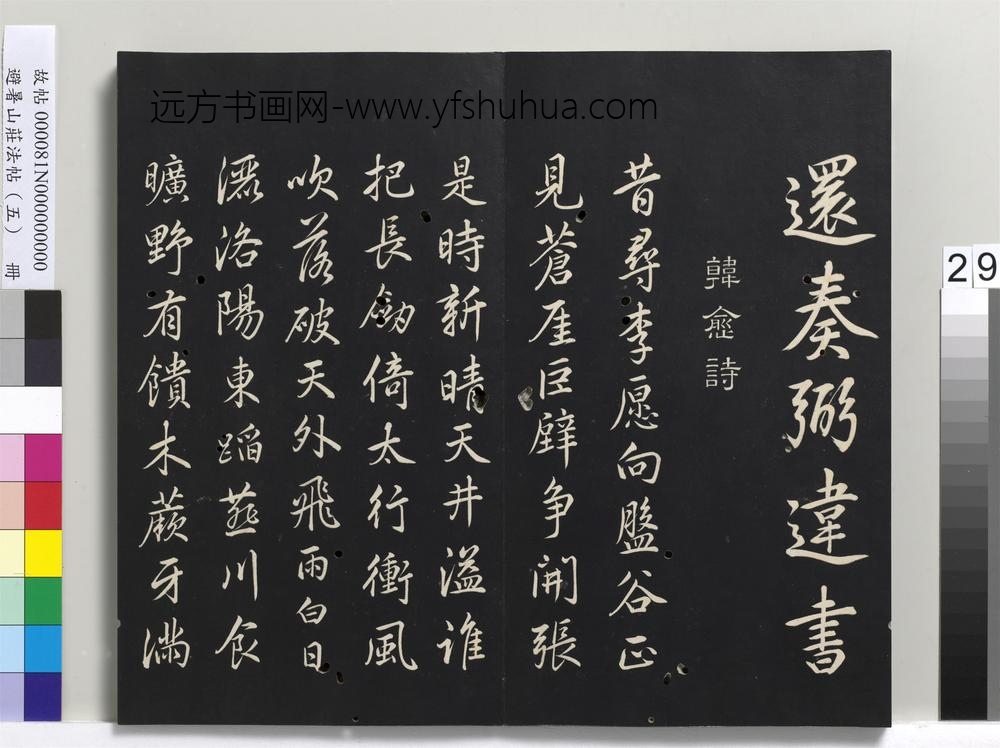 還奏弼違書
韓愈詩
昔尋李愿向盤谷正
見蒼崖巨壁争開張
是時新晴天井溢誰
把長劒倚太行衝風
吹落破天外飛雨白日
灑洛陽東蹈燕川食
曠野有饋木蕨牙滿
远方书画网-www.yfshuhua.com
故帖 000081N000000000
避暑山莊法帖（五） 冊
29